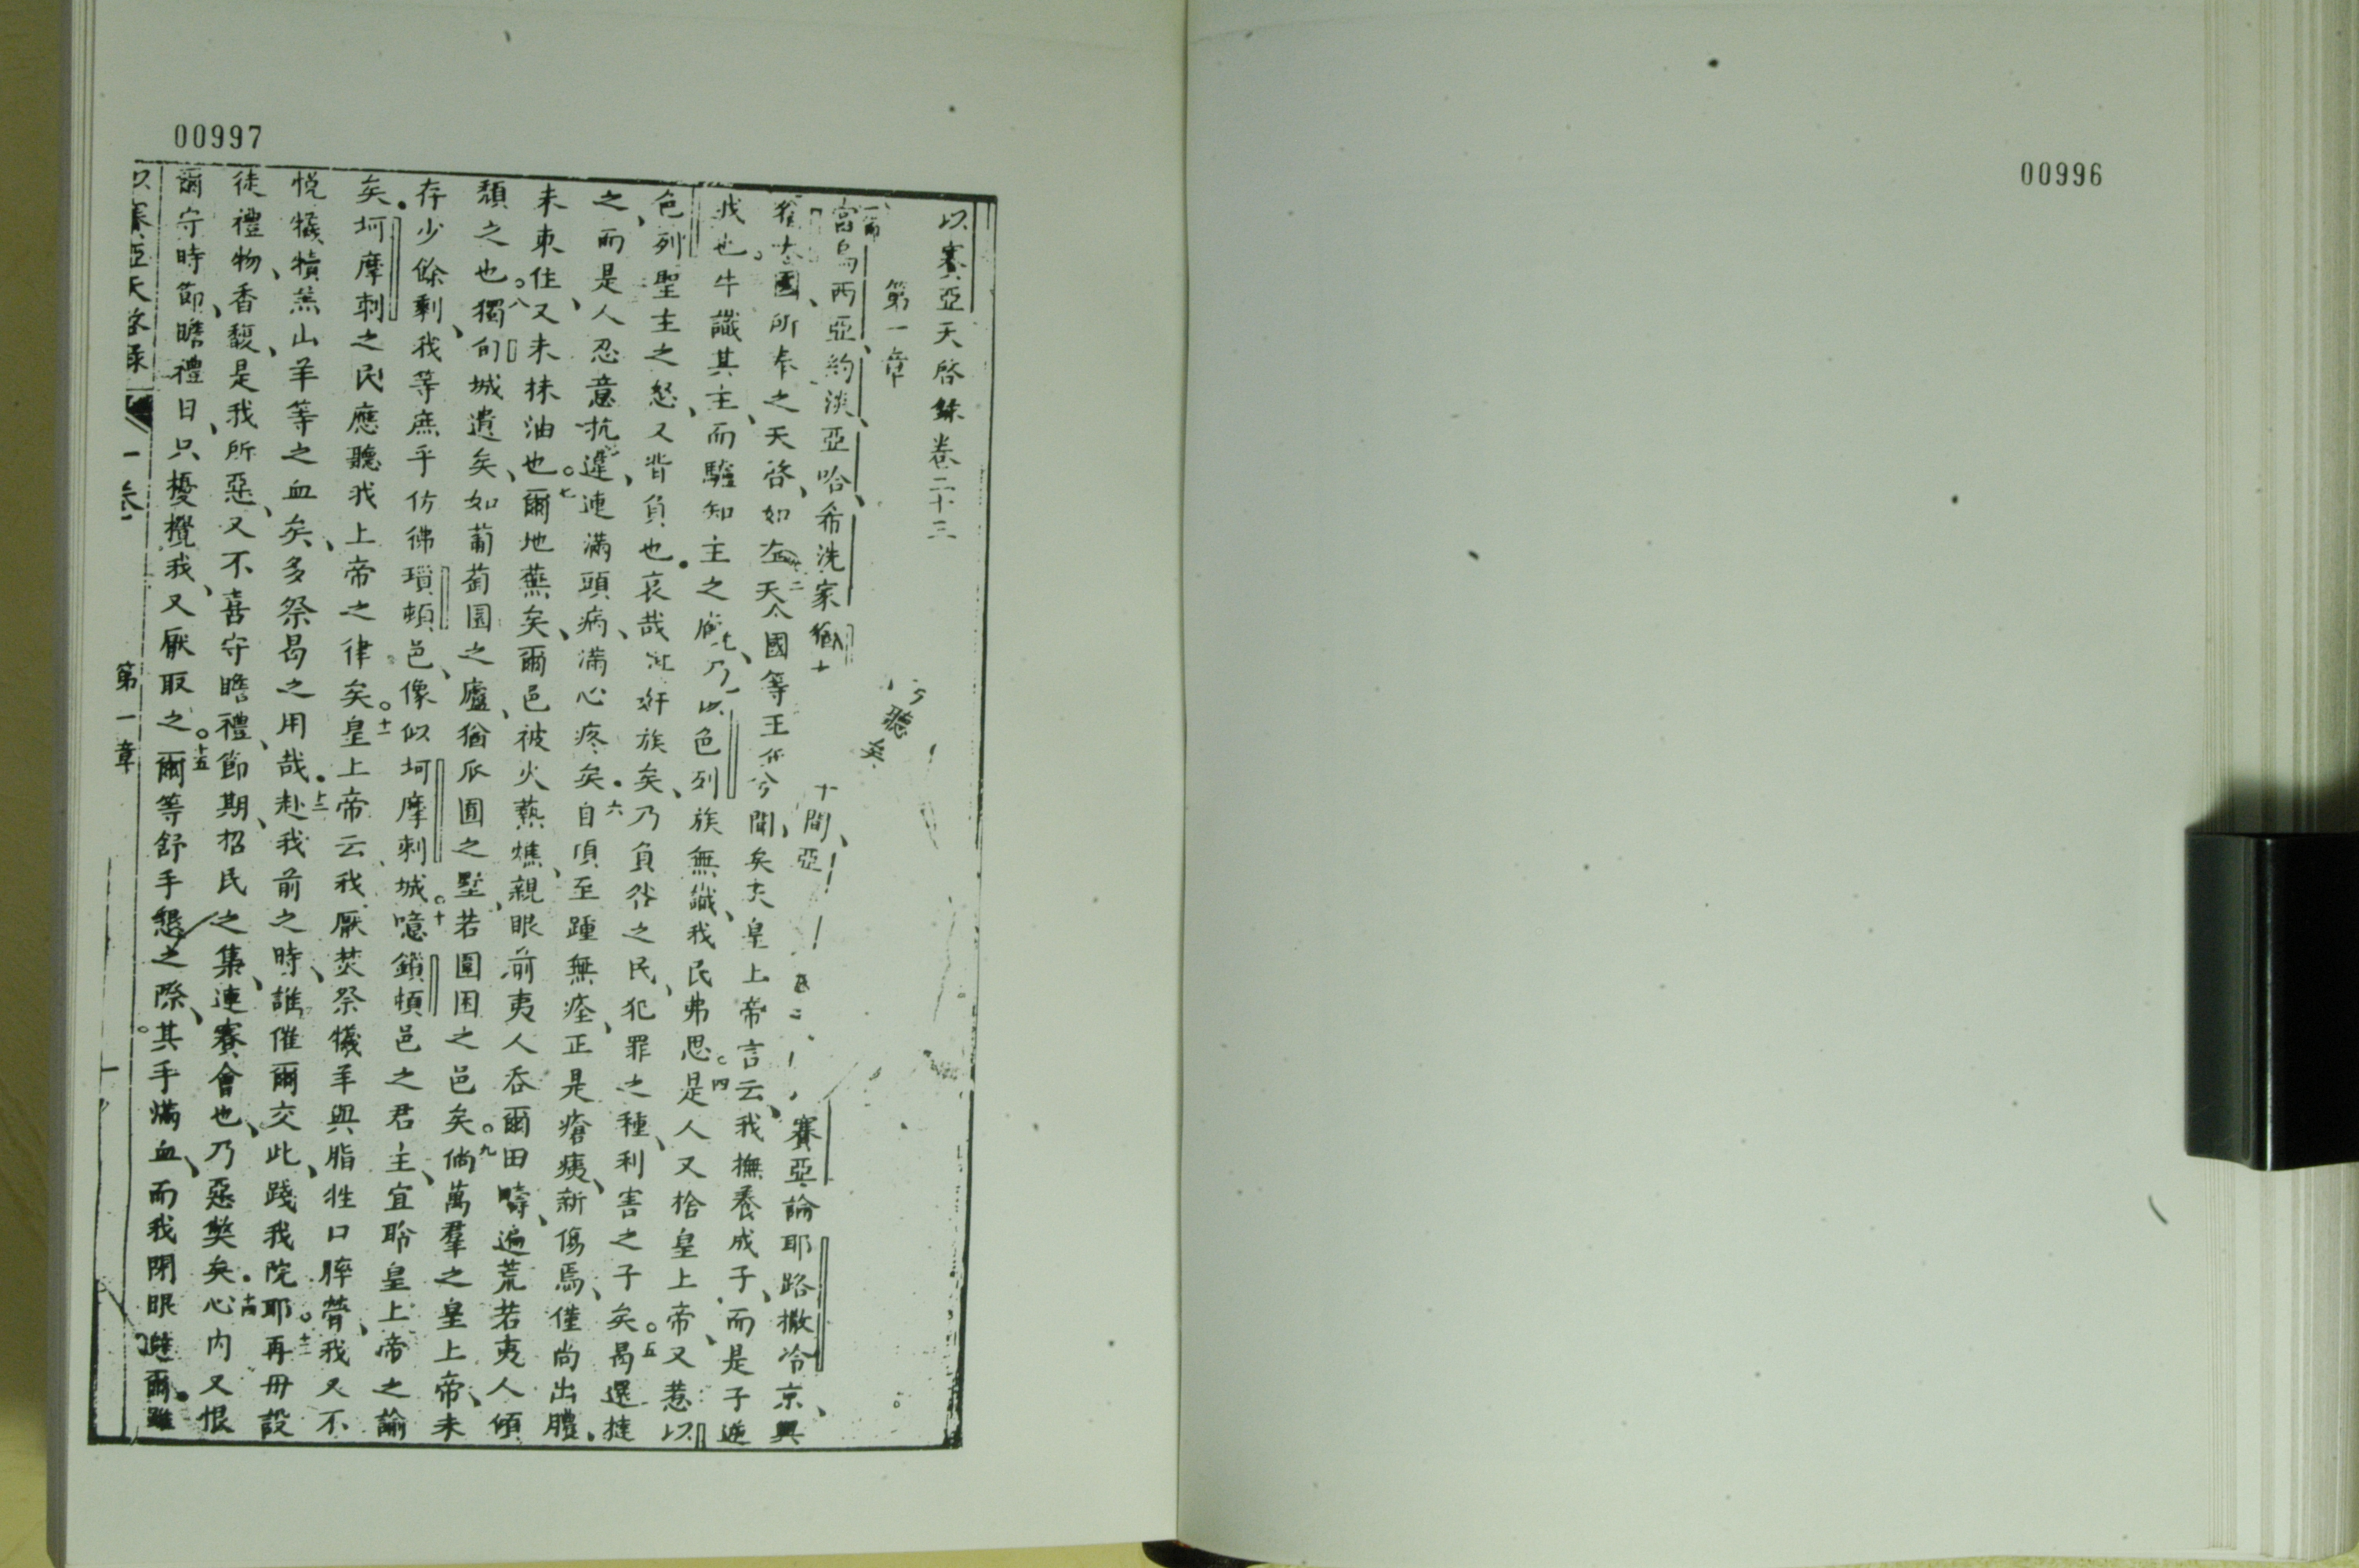 00996
00997
以賽亞天啓錄卷二十三
第一章
當烏西亞約淡亞哈希洗家猶 間亞 賽亞論耶路撒冷京與
猶太國所奉之天啓如左二天 國等王 聞矣夫皇上帝言云我撫養成子而是子逆
我也牛識其主而驢知主之 乃以色列族無識我民弗思四是人又捨皇上帝又惹以
色列聖主之怒又背負也哀哉 奸族矣乃負咎之民犯罪之種利害之子矣五曷還撻
之而是人忍意抗違連滿頭病滿心疼矣六自頂至踵無痊正是瘡痍新傷焉僅尚出膿
未束住又未抹油也七爾地蕪矣爾邑被火燕燋親眼前夷人吞爾田疇遍荒若夷人傾
頹之也八獨郇城遺矣如葡萄園之廬猶瓜圃之墅若圍困之邑矣九倘萬羣之皇上帝未
存少餘剩我等庶乎仿彿瑣頓邑像似坷摩剌城十噫鎖頓邑之君主宜聆皇上帝之諭
矣坷摩剌之民應聽我上帝之律矣十一皇上帝云我厭焚祭犧羊與脂牲口膟膋我又不
悅犧犢羔山羊等之血矣多祭曷之用哉十二赴我前之時誰催爾交此踐我院耶十三再毋設
徒禮物香馥是我所惡又不喜守瞻禮節期招民之集連賽會也乃惡獘矣十四心內又恨
爾守時節瞻禮日只擾攪我又厭取之十五爾等舒手懇之際其手滿血而我閉眼 爾雖
以賽亞天啓錄 一卷 第一章 一